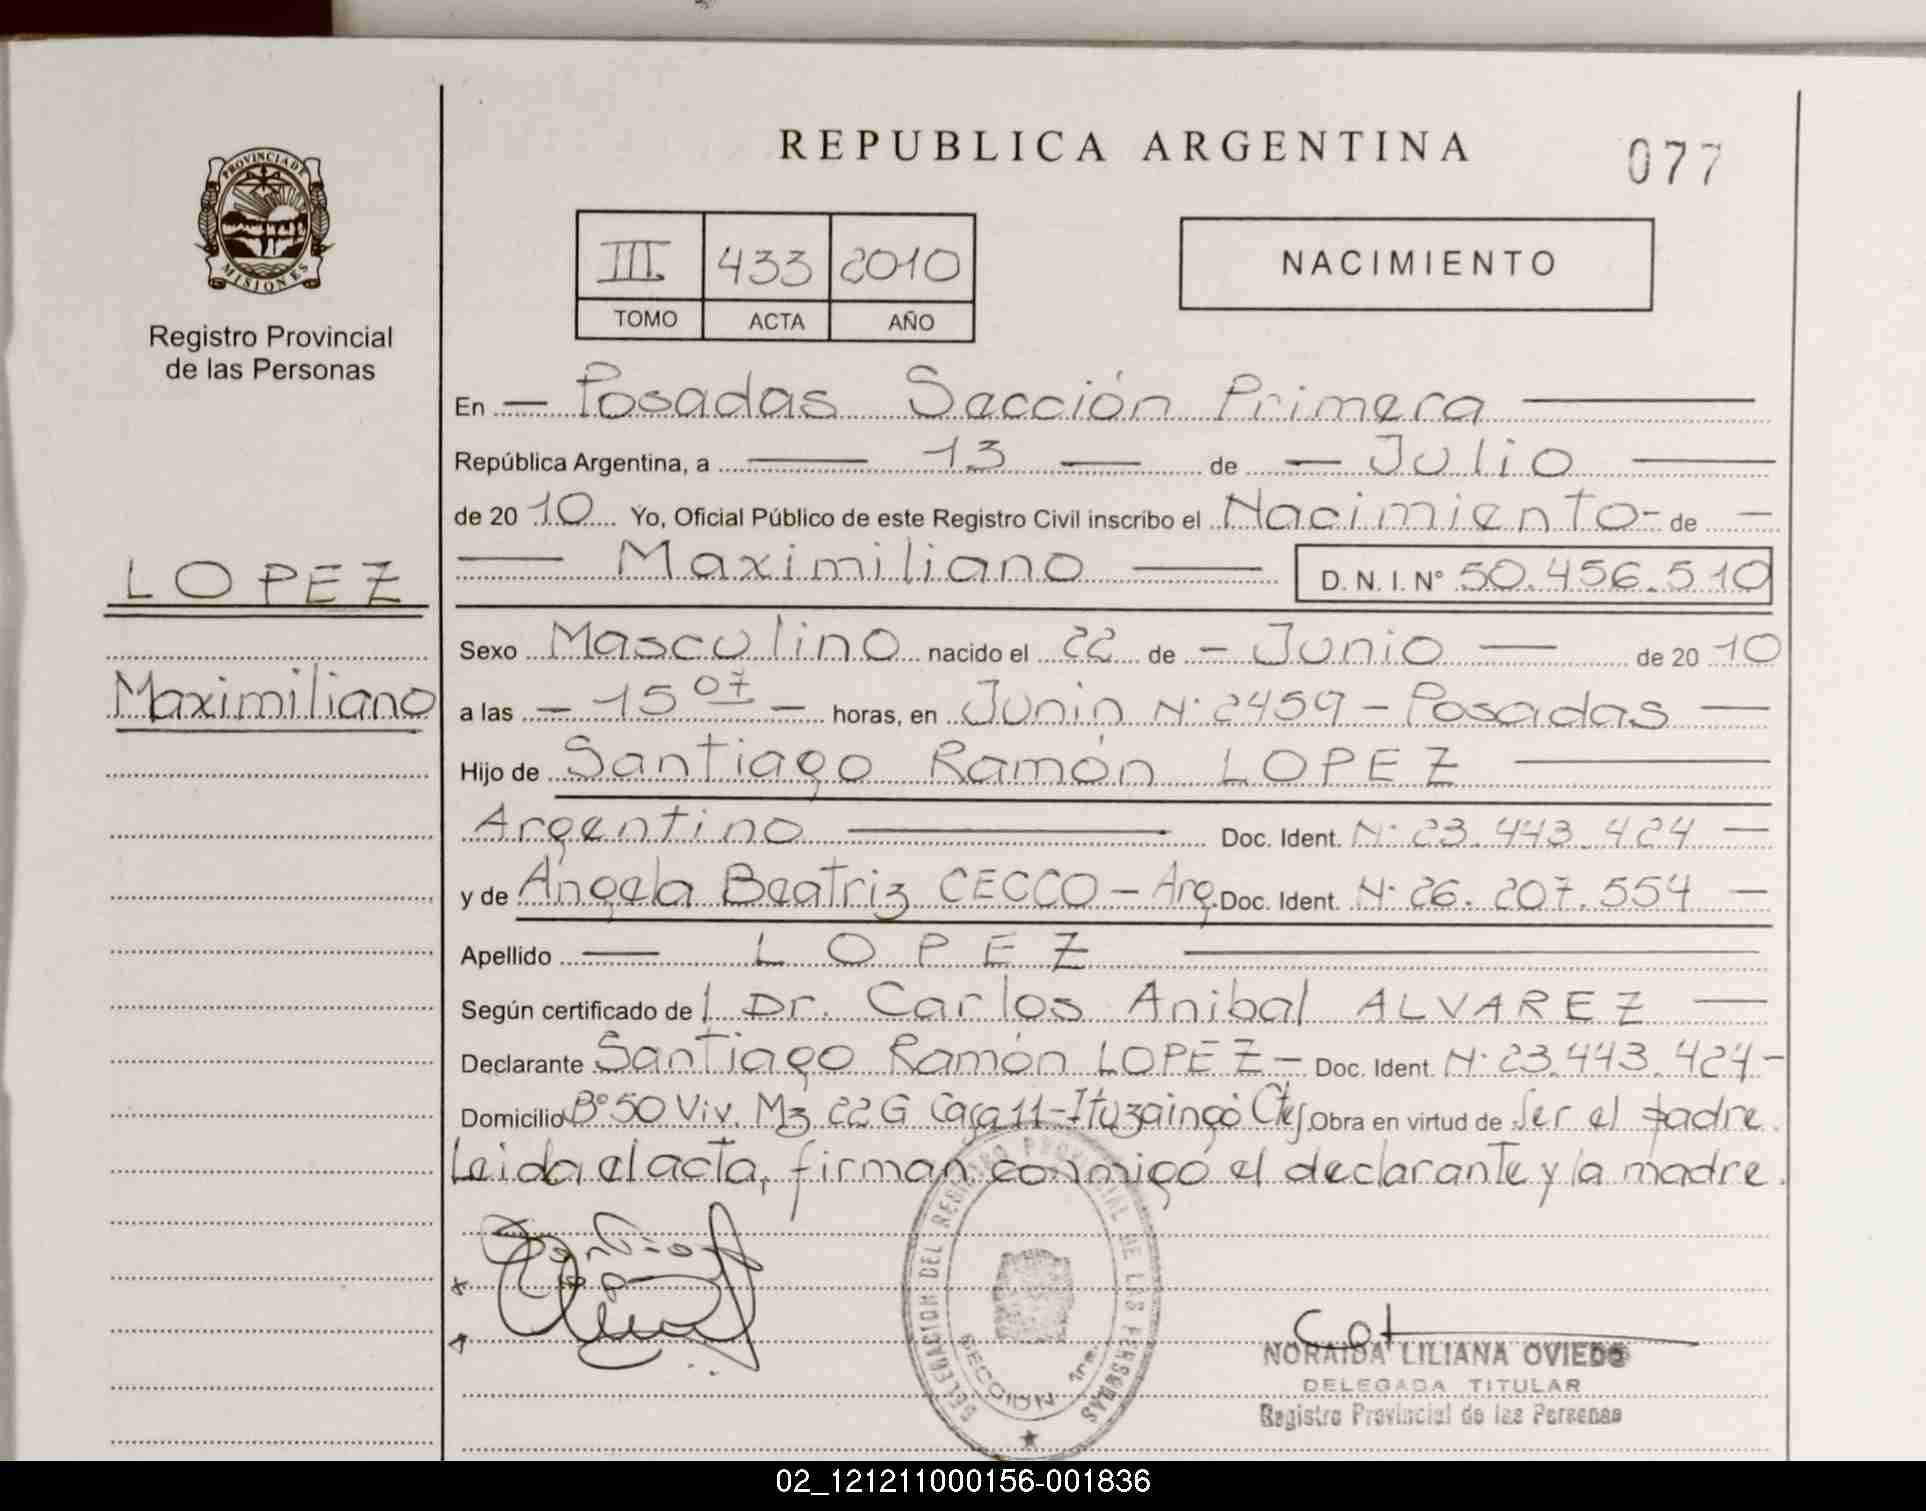 REPUBLICA ARGENTINA
077
PROVINCIA DE
MISIONES
Registro Provincial
de las Personas
III. 433 2010
TOMO ACTA AÑO
NACIMIENTO
En — Posadas Sección Primera —
República Argentina, a — 13 — de — Julio —
de 2010 Yo, Oficial Público de este Registro Civil inscribo el Nacimiento - de —
— Maximiliano — D. N. I. N° 50.456.510
LOPEZ
Maximiliano
Sexo Masculino nacido el 22 de — Junio — de 2010
a las — 15 07 — horas, en Junin N° 2459 - Posadas —
Hijo de Santiago Ramón LOPEZ —
Argentino — Doc. Ident. N° 23.443.424 —
y de Angela Beatriz CECCO - Arg. Doc. Ident. N° 26.207.554 —
Apellido — LOPEZ —
Según certificado de Dr. Carlos Anibal ALVAREZ —
Declarante Santiago Ramón LOPEZ — Doc. Ident. N° 23.443.424 -
Domicilio B° 50 Viv. Mz 22 G Casa 11 - Ituzaingó Ctes Obra en virtud de Ser el padre.
Leida el acta, firman conmigo el declarante y la madre.
DELEGACION DEL REGISTRO PROVINCIAL DE LAS PERSONAS
SECCION 1ra.
NORAIDA LILIANA OVIEDO
DELEGADA TITULAR
Registro Provincial de las Personas
02_121211000156-001836